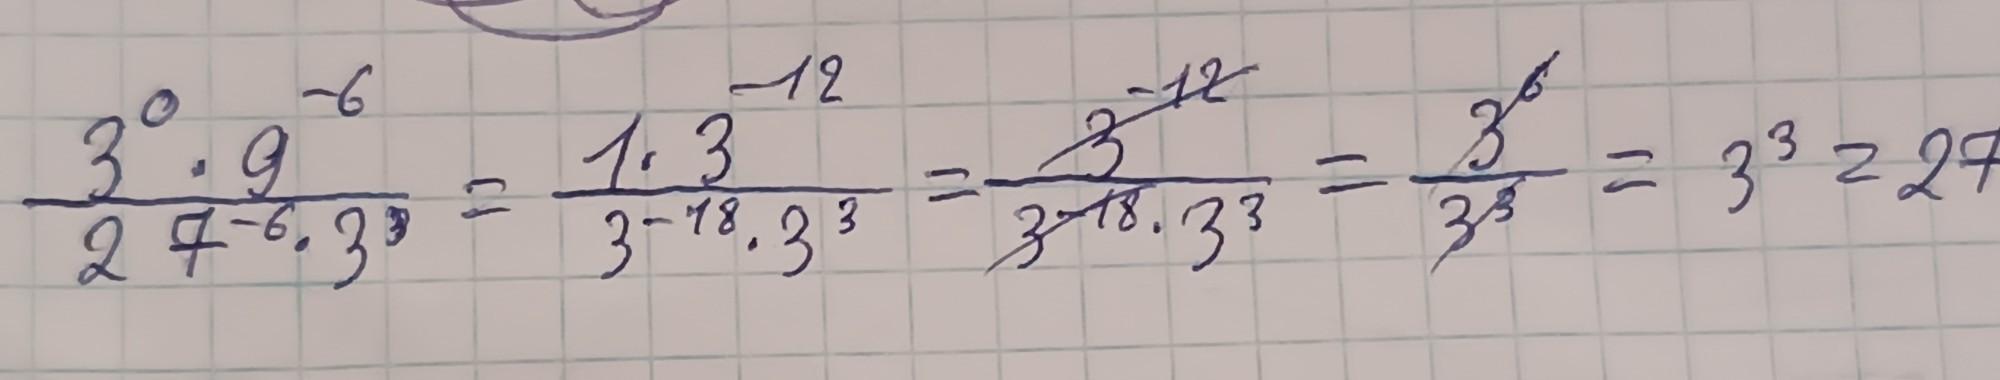 3⁰·9⁻⁶/27⁻⁶·3³ = 1·3⁻¹²/3⁻¹⁸·3³ = 3⁻¹²/3⁻¹⁸·3³ = 3⁶/3³ = 3³ = 27